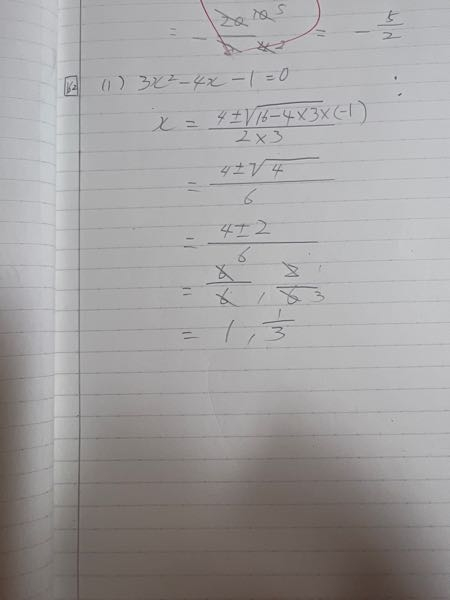 = - 20 10 5 / 8 4 2 = - 5/2
162 (1) 3x² - 4x - 1 = 0
x = (4 ± √(16 - 4×3×(-1))) / (2×3)
= (4 ± √4) / 6
= (4 ± 2) / 6
= 6/6 , 2 1 / 6 3
= 1 , 1/3